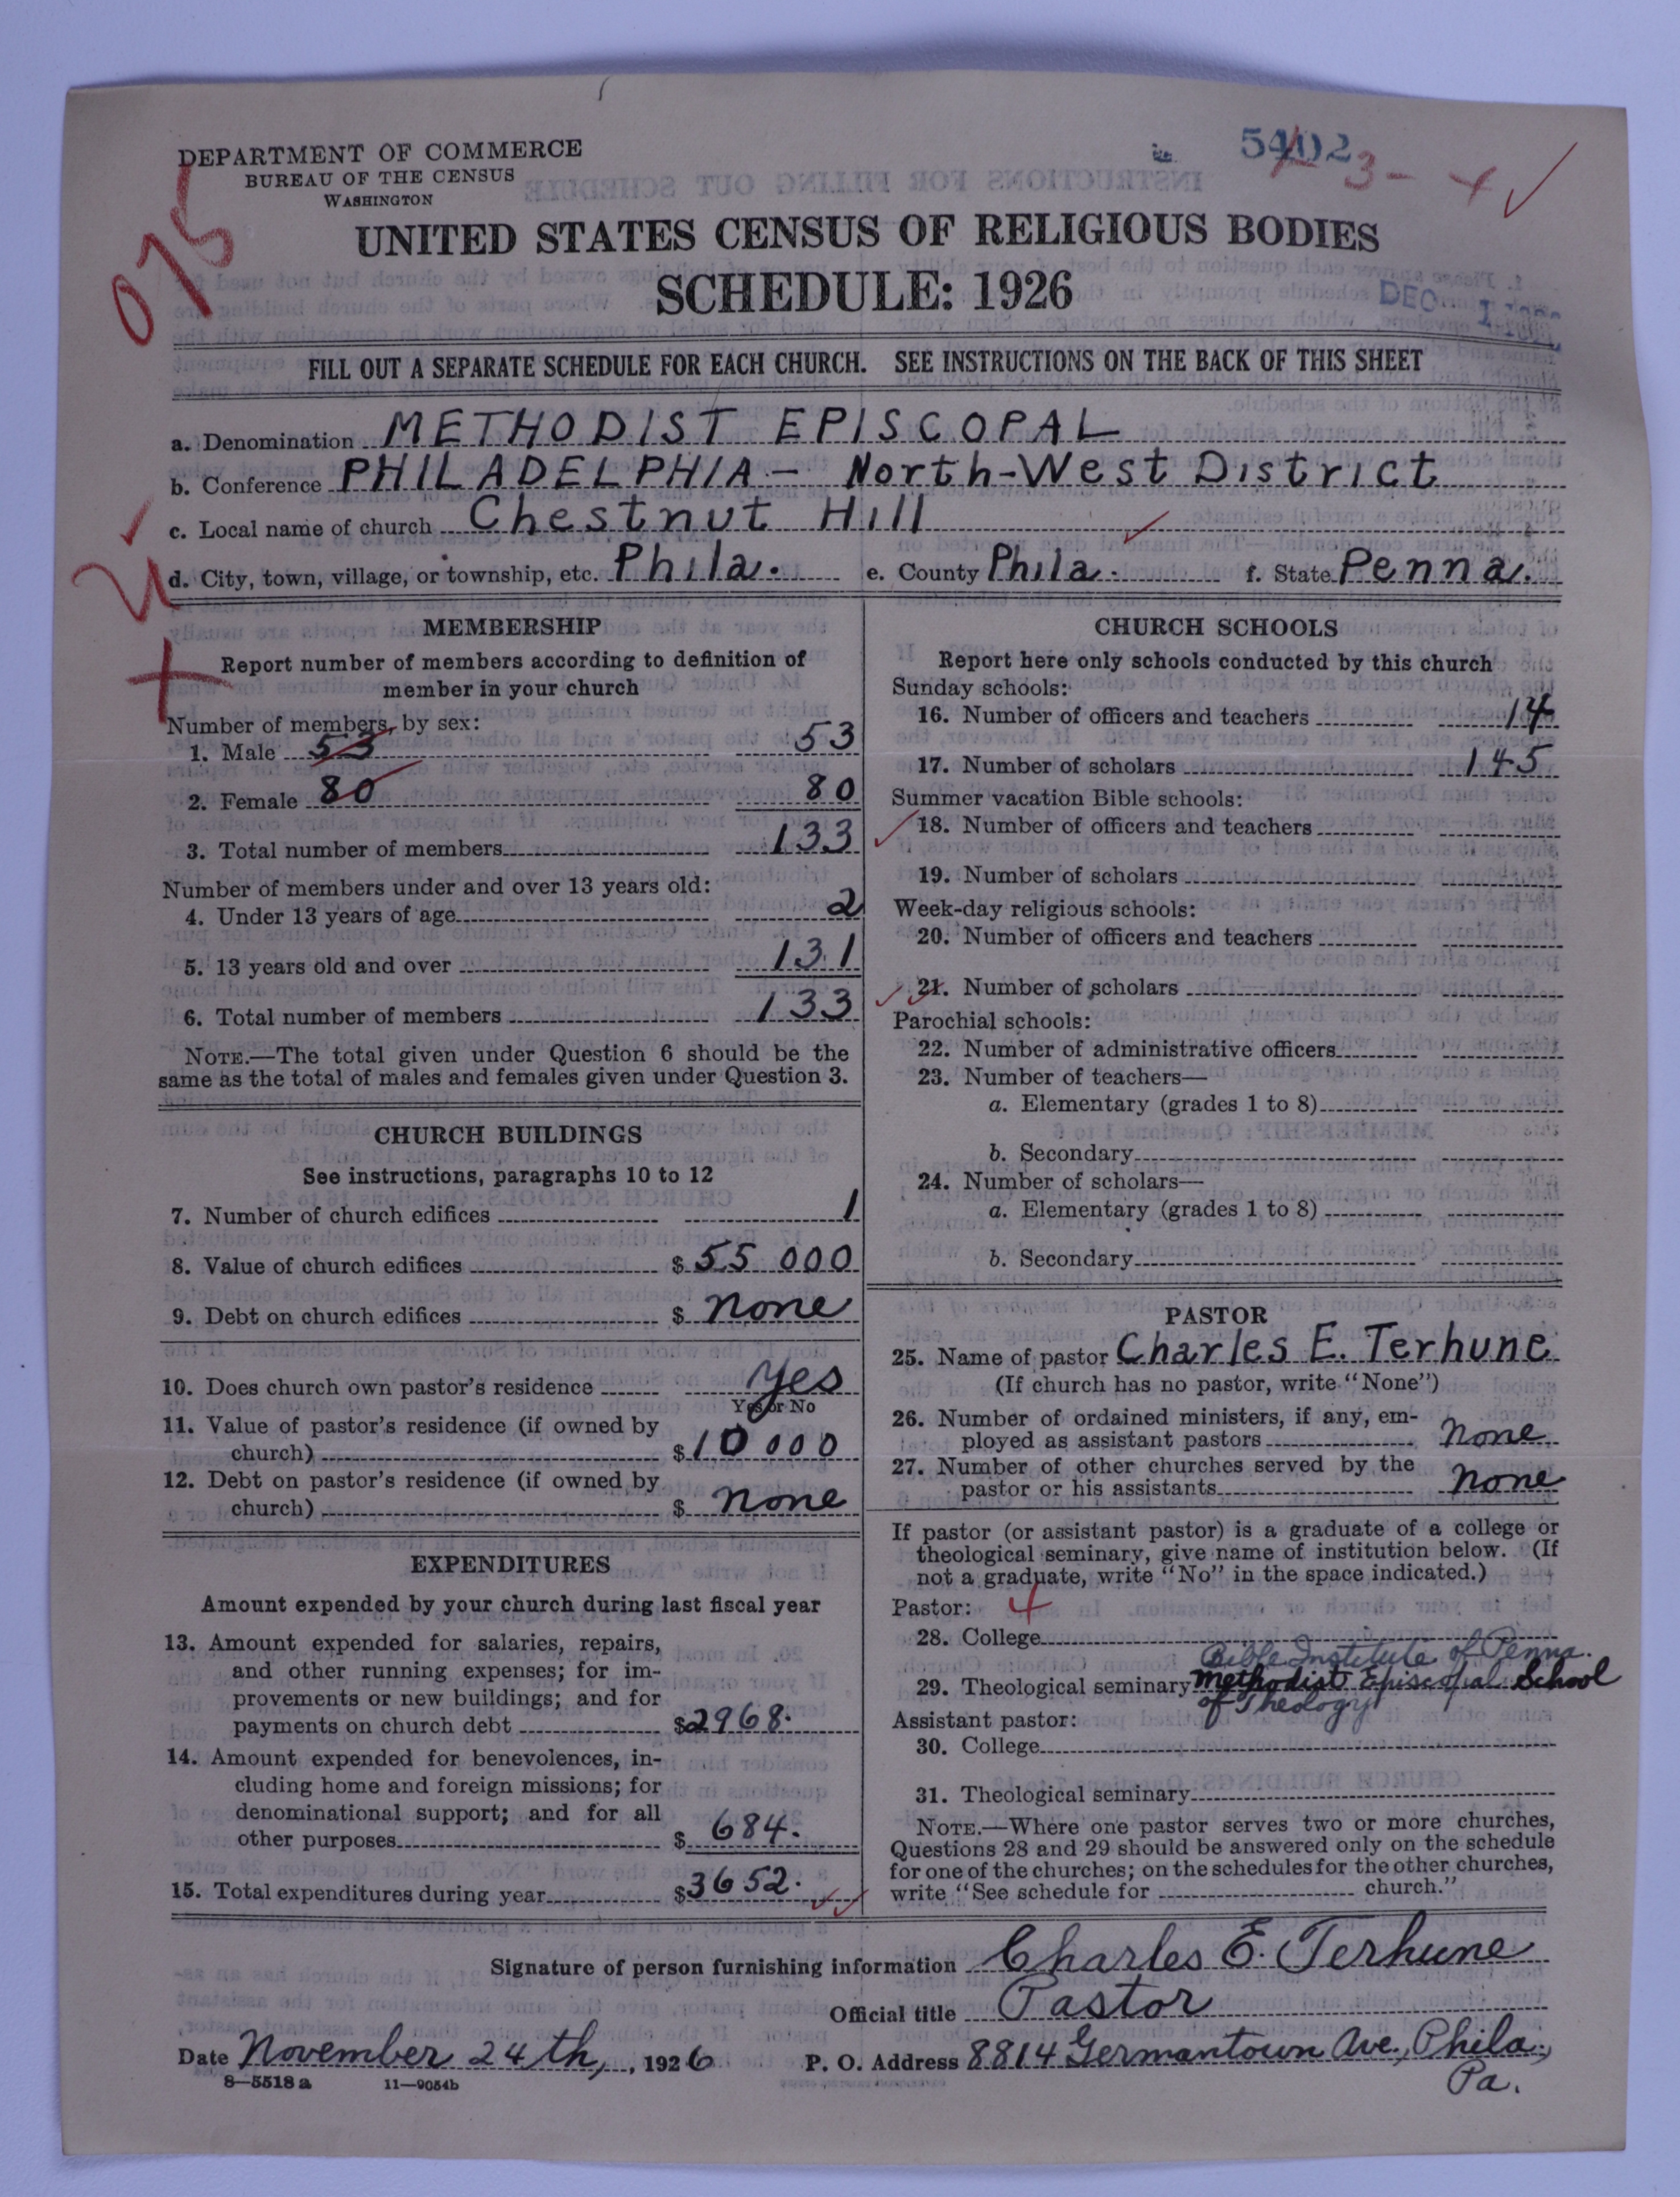 DEPARTMENT OF COMMERCE
BUREAU OF THE CENSUS
WASHINGTON
075
3 - 4
UNITED STATES CENSUS OF RELIGIOUS BODIES
SCHEDULE: 1926
DEC 1
FILL OUT A SEPARATE SCHEDULE FOR EACH CHURCH. SEE INSTRUCTIONS ON THE BACK OF THIS SHEET
a. Denomination METHODIST EPISCOPAL
b. Conference PHILADELPHIA - North-West District
c. Local name of church Chestnut Hill
d. City, town, village, or township, etc. Phila. e. County Phila. f. State Penna.
MEMBERSHIP
Report number of members according to definition of
member in your church
Number of members, by sex:
1. Male 53 53
2. Female 80 80
3. Total number of members 133
Number of members under and over 13 years old:
4. Under 13 years of age 2
5. 13 years old and over 131
6. Total number of members 133
NOTE.—The total given under Question 6 should be the
same as the total of males and females given under Question 3.
CHURCH BUILDINGS
See instructions, paragraphs 10 to 12
7. Number of church edifices 1
8. Value of church edifices $ 55 000
9. Debt on church edifices $ none
10. Does church own pastor's residence yes
Yes or No
11. Value of pastor's residence (if owned by
church) $ 10 000
12. Debt on pastor's residence (if owned by
church) $ none
EXPENDITURES
Amount expended by your church during last fiscal year
13. Amount expended for salaries, repairs,
and other running expenses; for im-
provements or new buildings; and for
payments on church debt $ 2968.
14. Amount expended for benevolences, in-
cluding home and foreign missions; for
denominational support; and for all
other purposes $ 684.
15. Total expenditures during year $ 3652.
CHURCH SCHOOLS
Report here only schools conducted by this church
Sunday schools:
16. Number of officers and teachers 14
17. Number of scholars 145
Summer vacation Bible schools:
18. Number of officers and teachers
19. Number of scholars
Week-day religious schools:
20. Number of officers and teachers
21. Number of scholars
Parochial schools:
22. Number of administrative officers
23. Number of teachers—
a. Elementary (grades 1 to 8)
b. Secondary
24. Number of scholars—
a. Elementary (grades 1 to 8)
b. Secondary
PASTOR
25. Name of pastor Charles E. Terhune
(If church has no pastor, write "None")
26. Number of ordained ministers, if any, em-
ployed as assistant pastors none
27. Number of other churches served by the
pastor or his assistants none
If pastor (or assistant pastor) is a graduate of a college or
theological seminary, give name of institution below. (If
not a graduate, write "No" in the space indicated.)
Pastor: 4
28. College
Bible Institute of Penna.
29. Theological seminary Methodist Episcopal School
of Theology
Assistant pastor:
30. College
31. Theological seminary
NOTE.—Where one pastor serves two or more churches,
Questions 28 and 29 should be answered only on the schedule
for one of the churches; on the schedules for the other churches,
write "See schedule for church."
Signature of person furnishing information Charles E. Terhune
Official title Pastor
Date November 24th, 1926 P. O. Address 8814 Germantown Ave., Phila.,
Pa.
8—5518 a 11—9054b